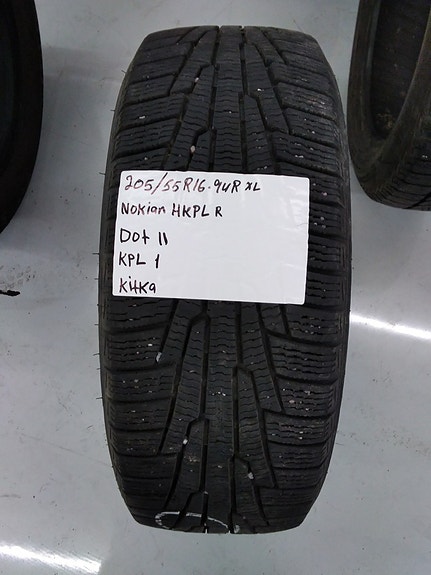 205/55R16.94R XL
Nokian HKPL R
Dot 11
KPL 1
Kitka